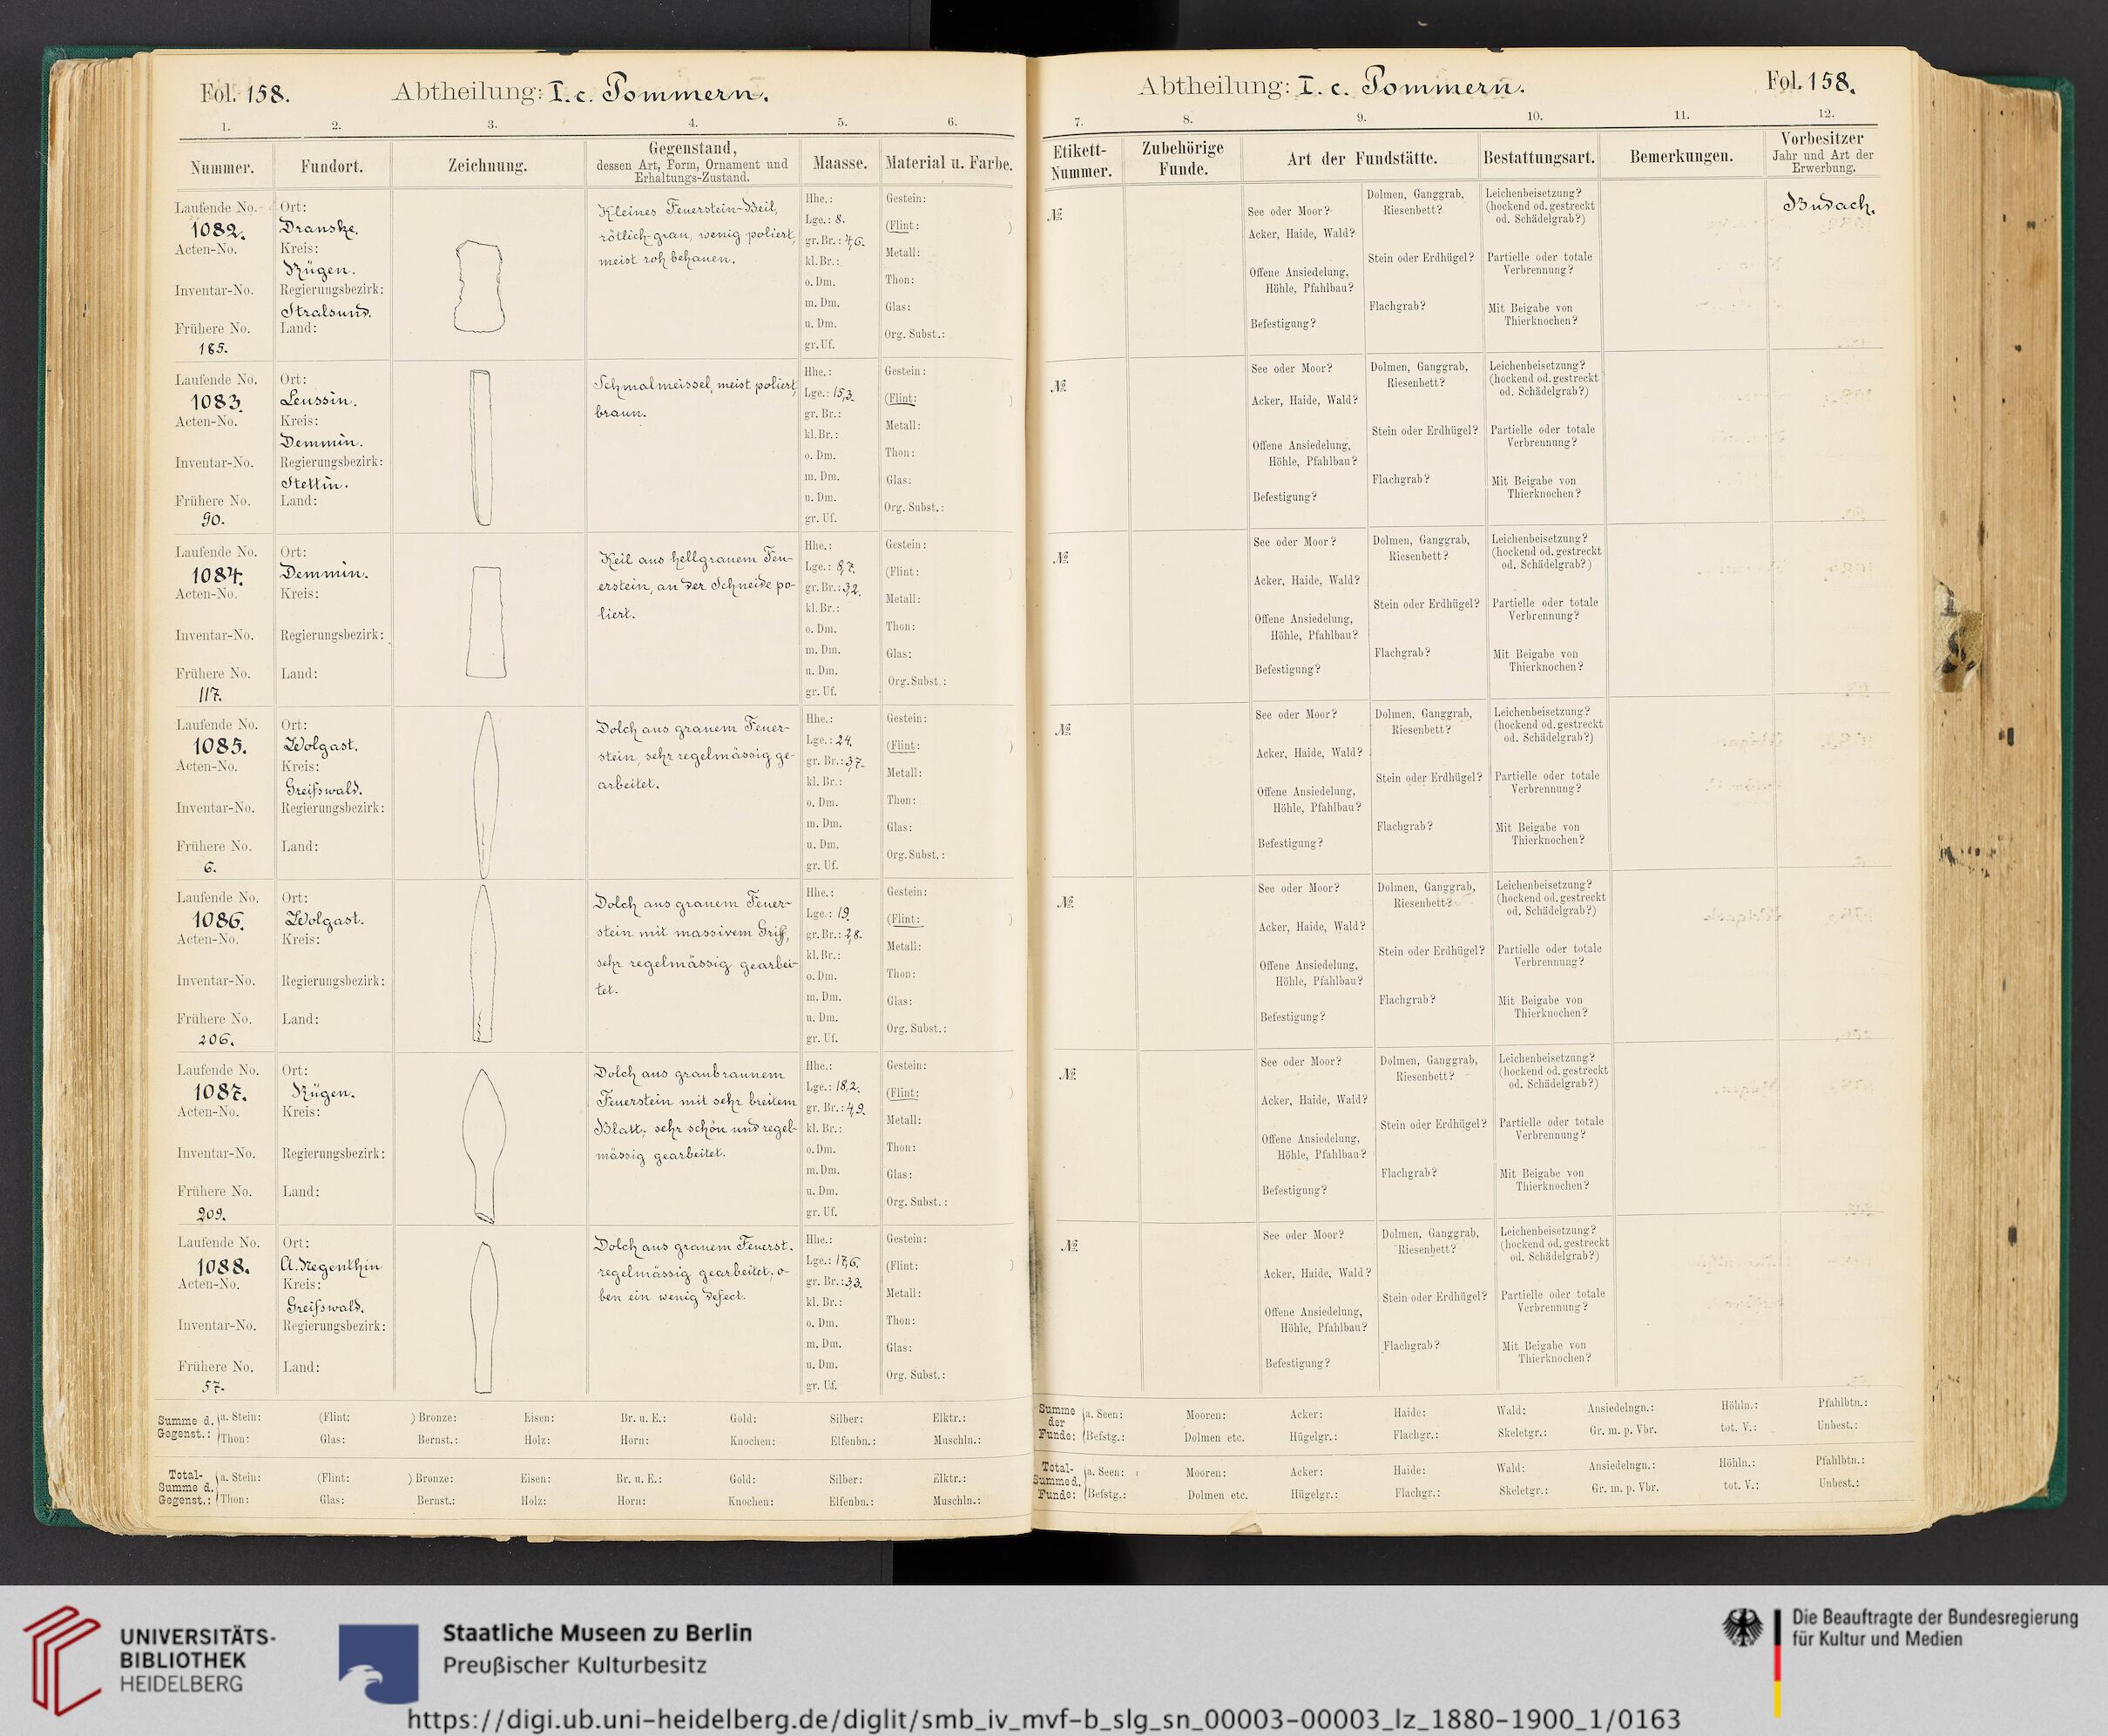 Fol. 158. Abtheilung: I. c. Pommern.
1. 2. 3. 4. 5. 6.
Nummer. Fundort. Zeichnung. Gegenstand, dessen Art, Form, Ornament und Erhaltungs-Zustand. Maasse. Material u. Farbe.
Laufende No. 1082.
Acten-No.
Inventar-No.
Frühere No. 185.
Ort: Dranske.
Kreis: Rügen.
Regierungsbezirk: Stralsund.
Land:
Kleines Feuerstein-Beil,
rötlich-grau, wenig poliert,
meist roh behauen.
Hhe.:
Lge.: 8.
gr. Br.: 4,6.
kl. Br.:
o. Dm.
m. Dm.
u. Dm.
gr. Uf.
Gestein:
(Flint: )
Metall:
Thon:
Glas:
Org. Subst.:
Laufende No. 1083.
Acten-No.
Inventar-No.
Frühere No. 90.
Ort: Leussin.
Kreis: Demmin.
Regierungsbezirk: Stettin.
Land:
Schmalmeissel, meist poliert,
braun.
Hhe.:
Lge.: 15,3.
gr. Br.:
kl. Br.:
o. Dm.
m. Dm.
u. Dm.
gr. Uf.
Gestein:
(Flint: )
Metall:
Thon:
Glas:
Org. Subst.:
Laufende No. 1084.
Acten-No.
Inventar-No.
Frühere No. 117.
Ort: Demmin.
Kreis:
Regierungsbezirk:
Land:
Keil aus hellgrauem Feu-
erstein, an der Schneide po-
liert.
Hhe.:
Lge.: 8,7.
gr. Br.: 3,2.
kl. Br.:
o. Dm.
m. Dm.
u. Dm.
gr. Uf.
Gestein:
(Flint: )
Metall:
Thon:
Glas:
Org. Subst.:
Laufende No. 1085.
Acten-No.
Inventar-No.
Frühere No. 6.
Ort: Wolgast.
Kreis: Greifswald.
Regierungsbezirk:
Land:
Dolch aus grauem Feuer-
stein, sehr regelmässig ge-
arbeitet.
Hhe.:
Lge.: 24.
gr. Br.: 3,7.
kl. Br.:
o. Dm.
m. Dm.
u. Dm.
gr. Uf.
Gestein:
(Flint: )
Metall:
Thon:
Glas:
Org. Subst.:
Laufende No. 1086.
Acten-No.
Inventar-No.
Frühere No. 206.
Ort: Wolgast.
Kreis:
Regierungsbezirk:
Land:
Dolch aus grauem Feuer-
stein mit massivem Griff,
sehr regelmässig gearbei-
tet.
Hhe.:
Lge.: 19.
gr. Br.: 2,8.
kl. Br.:
o. Dm.
m. Dm.
u. Dm.
gr. Uf.
Gestein:
(Flint: )
Metall:
Thon:
Glas:
Org. Subst.:
Laufende No. 1087.
Acten-No.
Inventar-No.
Frühere No. 209.
Ort: Rügen.
Kreis:
Regierungsbezirk:
Land:
Dolch aus graubraunem
Feuerstein mit sehr breitem
Blatt; sehr schön und regel-
mässig gearbeitet.
Hhe.:
Lge.: 18,2.
gr. Br.: 4,9.
kl. Br.:
o. Dm.
m. Dm.
u. Dm.
gr. Uf.
Gestein:
(Flint: )
Metall:
Thon:
Glas:
Org. Subst.:
Laufende No. 1088.
Acten-No.
Inventar-No.
Frühere No. 57.
Ort: A. Negenthin
Kreis: Greifswald.
Regierungsbezirk:
Land:
Dolch aus grauem Feuerst.
regelmässig gearbeitet; o-
ben ein wenig defect.
Hhe.:
Lge.: 17,6.
gr. Br.: 3,3.
kl. Br.:
o. Dm.
m. Dm.
u. Dm.
gr. Uf.
Gestein:
(Flint: )
Metall:
Thon:
Glas:
Org. Subst.:
Summe d. Gegenst.: a. Stein: (Flint: ) Bronze: Eisen: Br. u. E.: Gold: Silber: Elktr.:
Thon: Glas: Bernst.: Holz: Horn: Knochen: Elfenbn.: Muschln.:
Total-Summe d. Gegenst.: a. Stein: (Flint: ) Bronze: Eisen: Br. u. E.: Gold: Silber: Elktr.:
Thon: Glas: Bernst.: Holz: Horn: Knochen: Elfenbn.: Muschln.:
Abtheilung: I. c. Pommern. Fol. 158.
7. 8. 9. 10. 11. 12.
Etikett-Nummer. Zubehörige Funde. Art der Fundstätte. Bestattungsart. Bemerkungen. Vorbesitzer Jahr und Art der Erwerbung.
№
See oder Moor?
Acker, Haide, Wald?
Offene Ansiedelung,
Höhle, Pfahlbau?
Befestigung?
Dolmen, Ganggrab,
Riesenbett?
Stein oder Erdhügel?
Flachgrab?
Leichenbeisetzung?
(hockend od. gestreckt
od. Schädelgrab?)
Partielle oder totale
Verbrennung?
Mit Beigabe von
Thierknochen?
Budach.
№
See oder Moor?
Acker, Haide, Wald?
Offene Ansiedelung,
Höhle, Pfahlbau?
Befestigung?
Dolmen, Ganggrab,
Riesenbett?
Stein oder Erdhügel?
Flachgrab?
Leichenbeisetzung?
(hockend od. gestreckt
od. Schädelgrab?)
Partielle oder totale
Verbrennung?
Mit Beigabe von
Thierknochen?
№
See oder Moor?
Acker, Haide, Wald?
Offene Ansiedelung,
Höhle, Pfahlbau?
Befestigung?
Dolmen, Ganggrab,
Riesenbett?
Stein oder Erdhügel?
Flachgrab?
Leichenbeisetzung?
(hockend od. gestreckt
od. Schädelgrab?)
Partielle oder totale
Verbrennung?
Mit Beigabe von
Thierknochen?
№
See oder Moor?
Acker, Haide, Wald?
Offene Ansiedelung,
Höhle, Pfahlbau?
Befestigung?
Dolmen, Ganggrab,
Riesenbett?
Stein oder Erdhügel?
Flachgrab?
Leichenbeisetzung?
(hockend od. gestreckt
od. Schädelgrab?)
Partielle oder totale
Verbrennung?
Mit Beigabe von
Thierknochen?
№
See oder Moor?
Acker, Haide, Wald?
Offene Ansiedelung,
Höhle, Pfahlbau?
Befestigung?
Dolmen, Ganggrab,
Riesenbett?
Stein oder Erdhügel?
Flachgrab?
Leichenbeisetzung?
(hockend od. gestreckt
od. Schädelgrab?)
Partielle oder totale
Verbrennung?
Mit Beigabe von
Thierknochen?
№
See oder Moor?
Acker, Haide, Wald?
Offene Ansiedelung,
Höhle, Pfahlbau?
Befestigung?
Dolmen, Ganggrab,
Riesenbett?
Stein oder Erdhügel?
Flachgrab?
Leichenbeisetzung?
(hockend od. gestreckt
od. Schädelgrab?)
Partielle oder totale
Verbrennung?
Mit Beigabe von
Thierknochen?
№
See oder Moor?
Acker, Haide, Wald?
Offene Ansiedelung,
Höhle, Pfahlbau?
Befestigung?
Dolmen, Ganggrab,
Riesenbett?
Stein oder Erdhügel?
Flachgrab?
Leichenbeisetzung?
(hockend od. gestreckt
od. Schädelgrab?)
Partielle oder totale
Verbrennung?
Mit Beigabe von
Thierknochen?
Summe der Funde: a. Seen: Mooren: Acker: Haide: Wald: Ansiedelngn.: Höhln.: Pfahlbtn.:
Befstg.: Dolmen etc. Hügelgr.: Flachgr.: Skeletgr.: Gr. m. p. Vbr. tot. V.: Unbest.:
Total-Summe d. Funde: a. Seen: Mooren: Acker: Haide: Wald: Ansiedelngn.: Höhln.: Pfahlbtn.:
Befstg.: Dolmen etc. Hügelgr.: Flachgr.: Skeletgr.: Gr. m. p. Vbr. tot. V.: Unbest.:
UNIVERSITÄTS-
BIBLIOTHEK
HEIDELBERG
Staatliche Museen zu Berlin
Preußischer Kulturbesitz
Die Beauftragte der Bundesregierung
für Kultur und Medien
https://digi.ub.uni-heidelberg.de/diglit/smb_iv_mvf-b_slg_sn_00003-00003_lz_1880-1900_1/0163